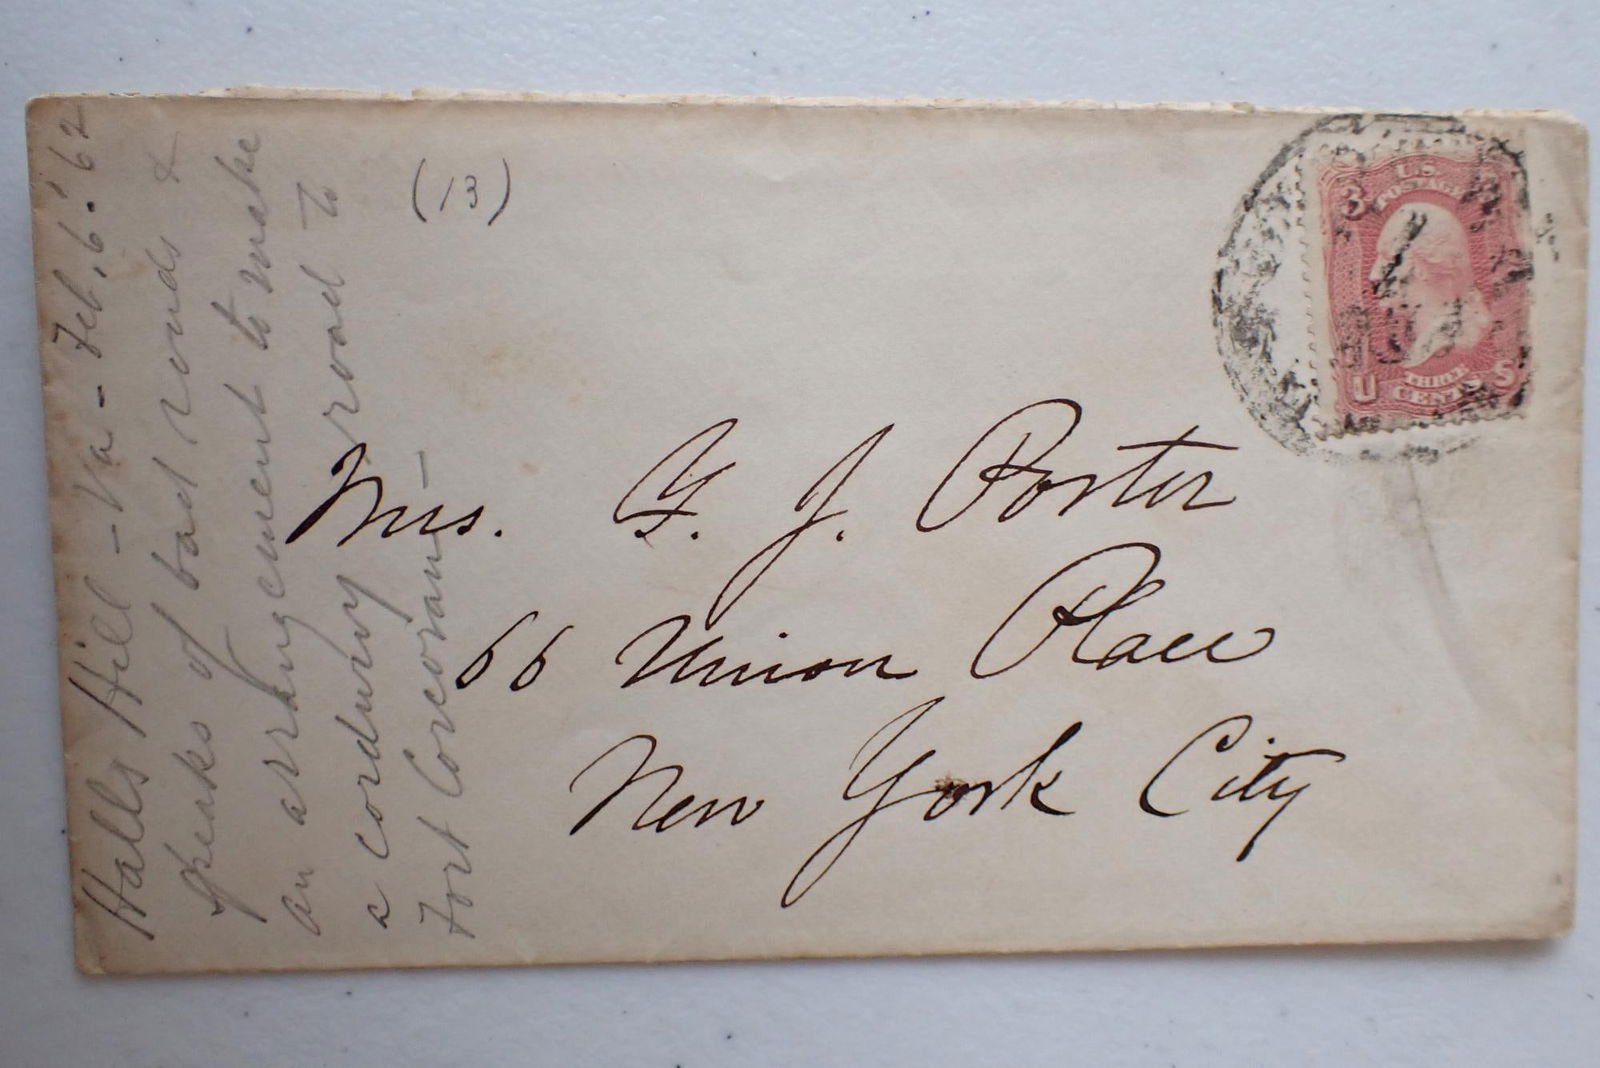 Halls Hill - Va - Feb. 6. '62
Speaks of bad roads &
an arrangement to make
a corduroy road to
Fort Corcoran -
(13)
U.S.
POSTAGE
3
U S
THREE
CENTS
Mrs. F. J. Porter
66 Union Place
New York City